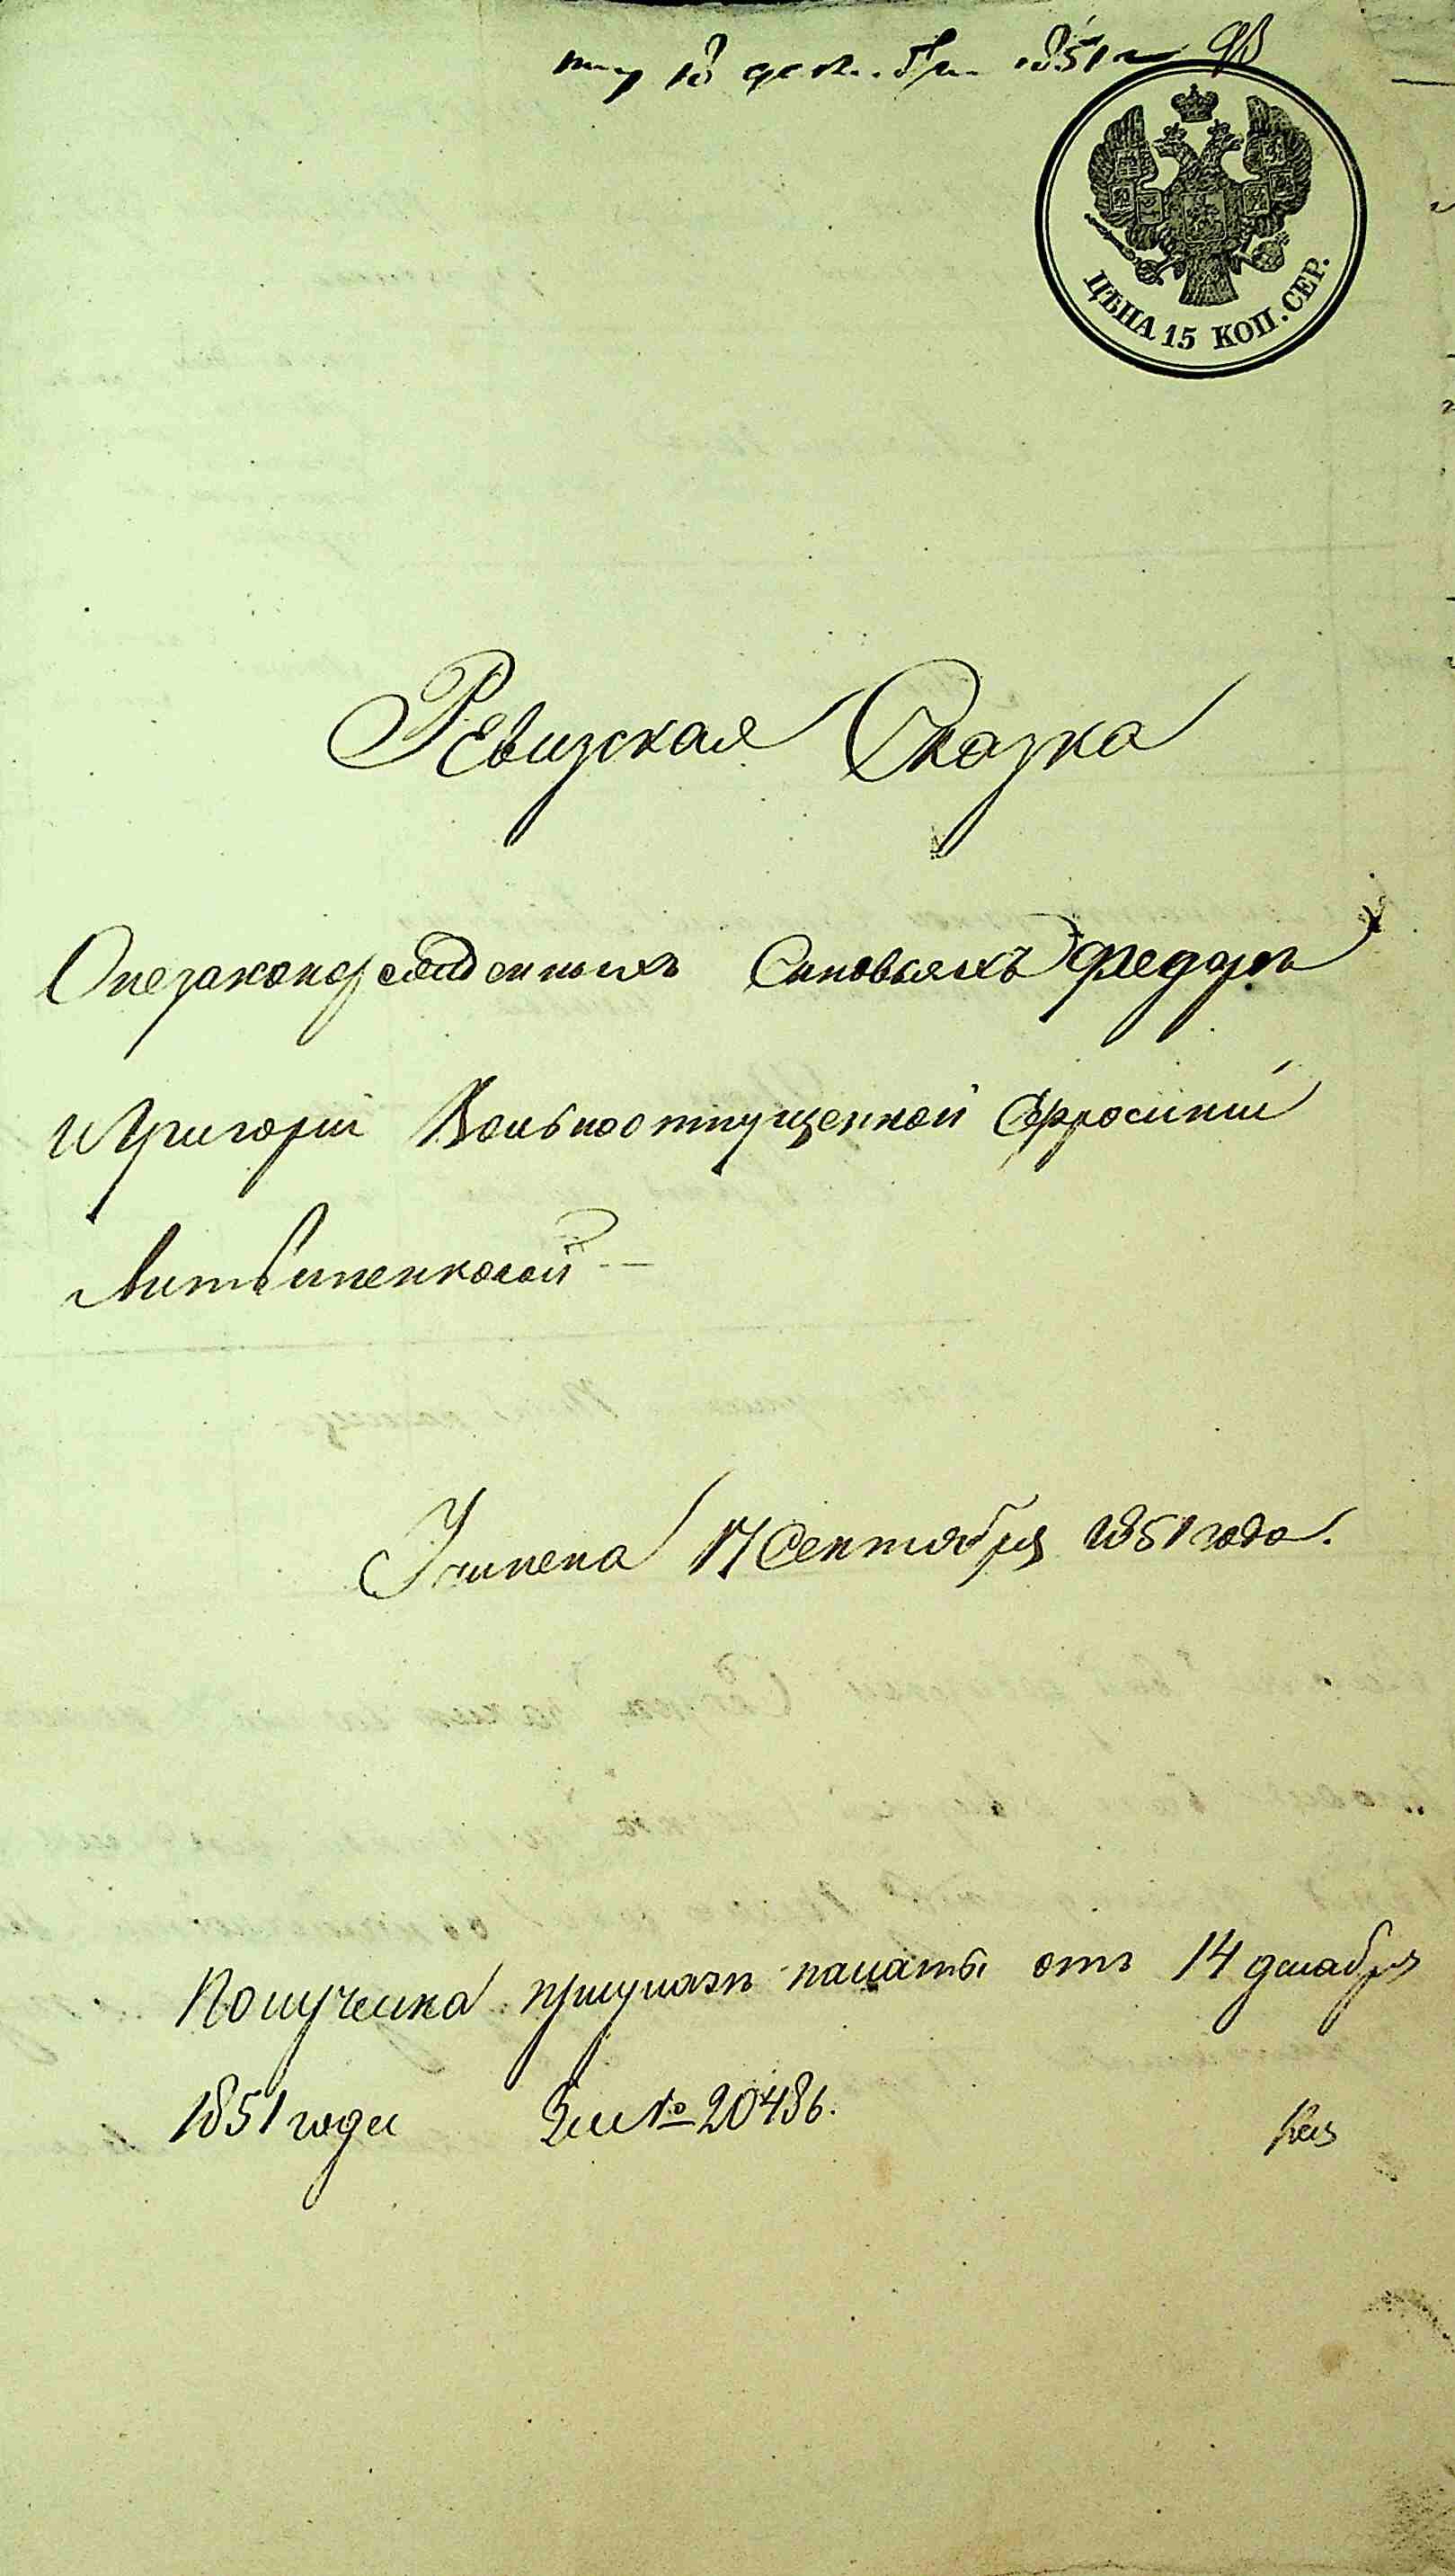 18 1851
ЦѢНА 15 КОП. СЕР.
Ревизская Сказка
Онезаконорожденныхъ Сыновьяхъ Федорѣ
и Григоріи Вольноотпущенной Ефросиніи
Литвиненковой
Учинена 17 Сентября 1851 года.
Получена при указѣ палаты отъ 14 декабря
1851 года За № 20486.